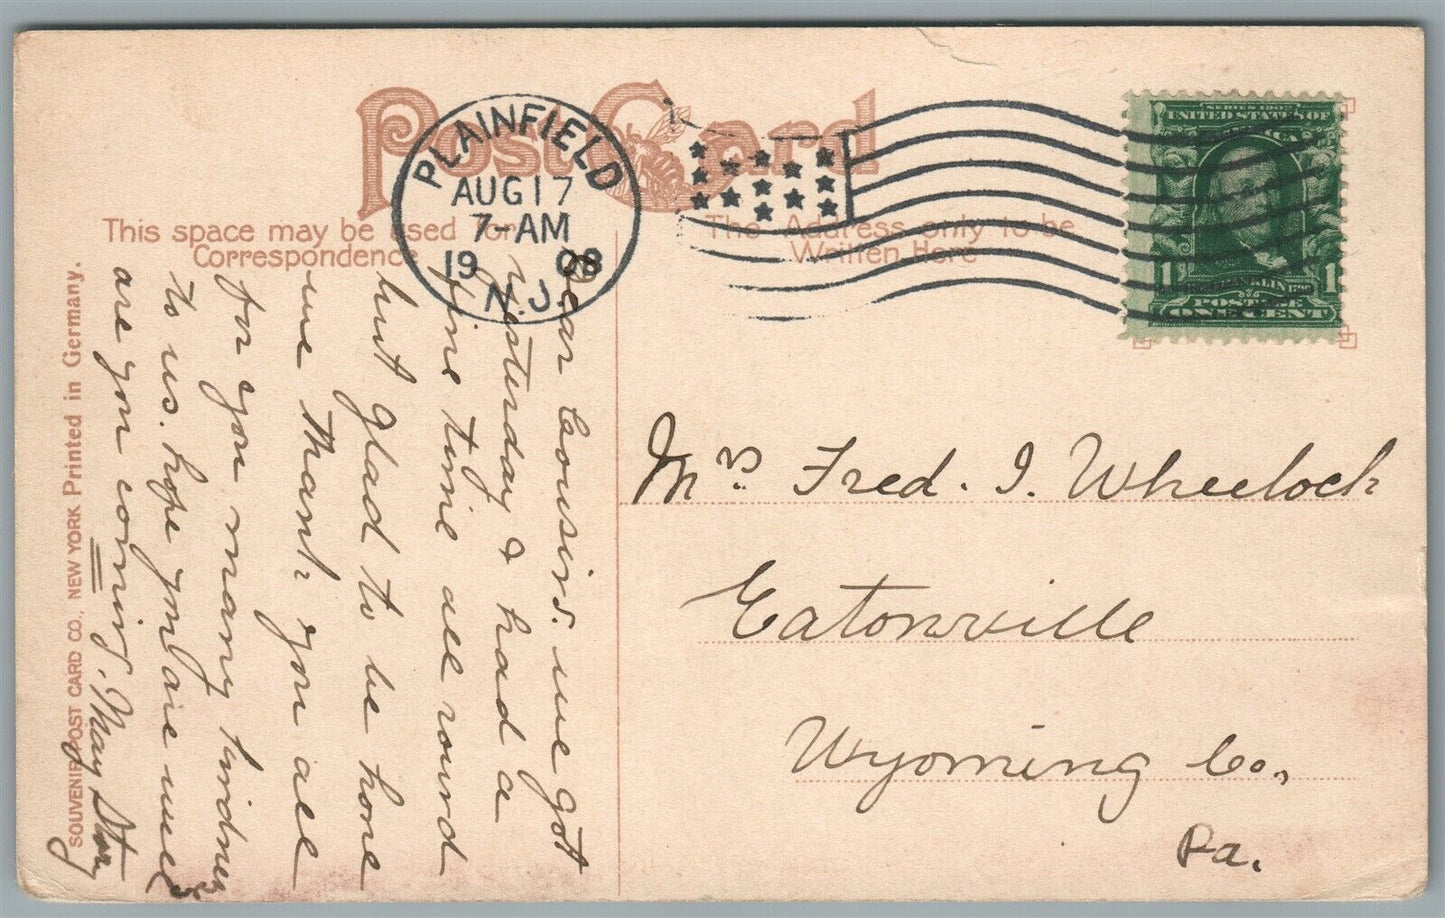 Post Card
This space may be used for
Correspondence
The Address only to be
Written Here
PLAINFIELD
AUG 17
7-AM
1908
N.J.
SERIES 1902
UNITED STATES OF
1 1
POSTAGE
ONE CENT
Dear Cousins. we got
yesturday & had a
fine time all round
but glad to be home
we thank you all
for you many kindness
to us. hope you are well
are you coming. May Story
Mrs Fred. I. Wheelock
Eatonville
Wyoming Co.,
Pa.
SOUVENIR POST CARD CO., NEW YORK Printed in Germany.